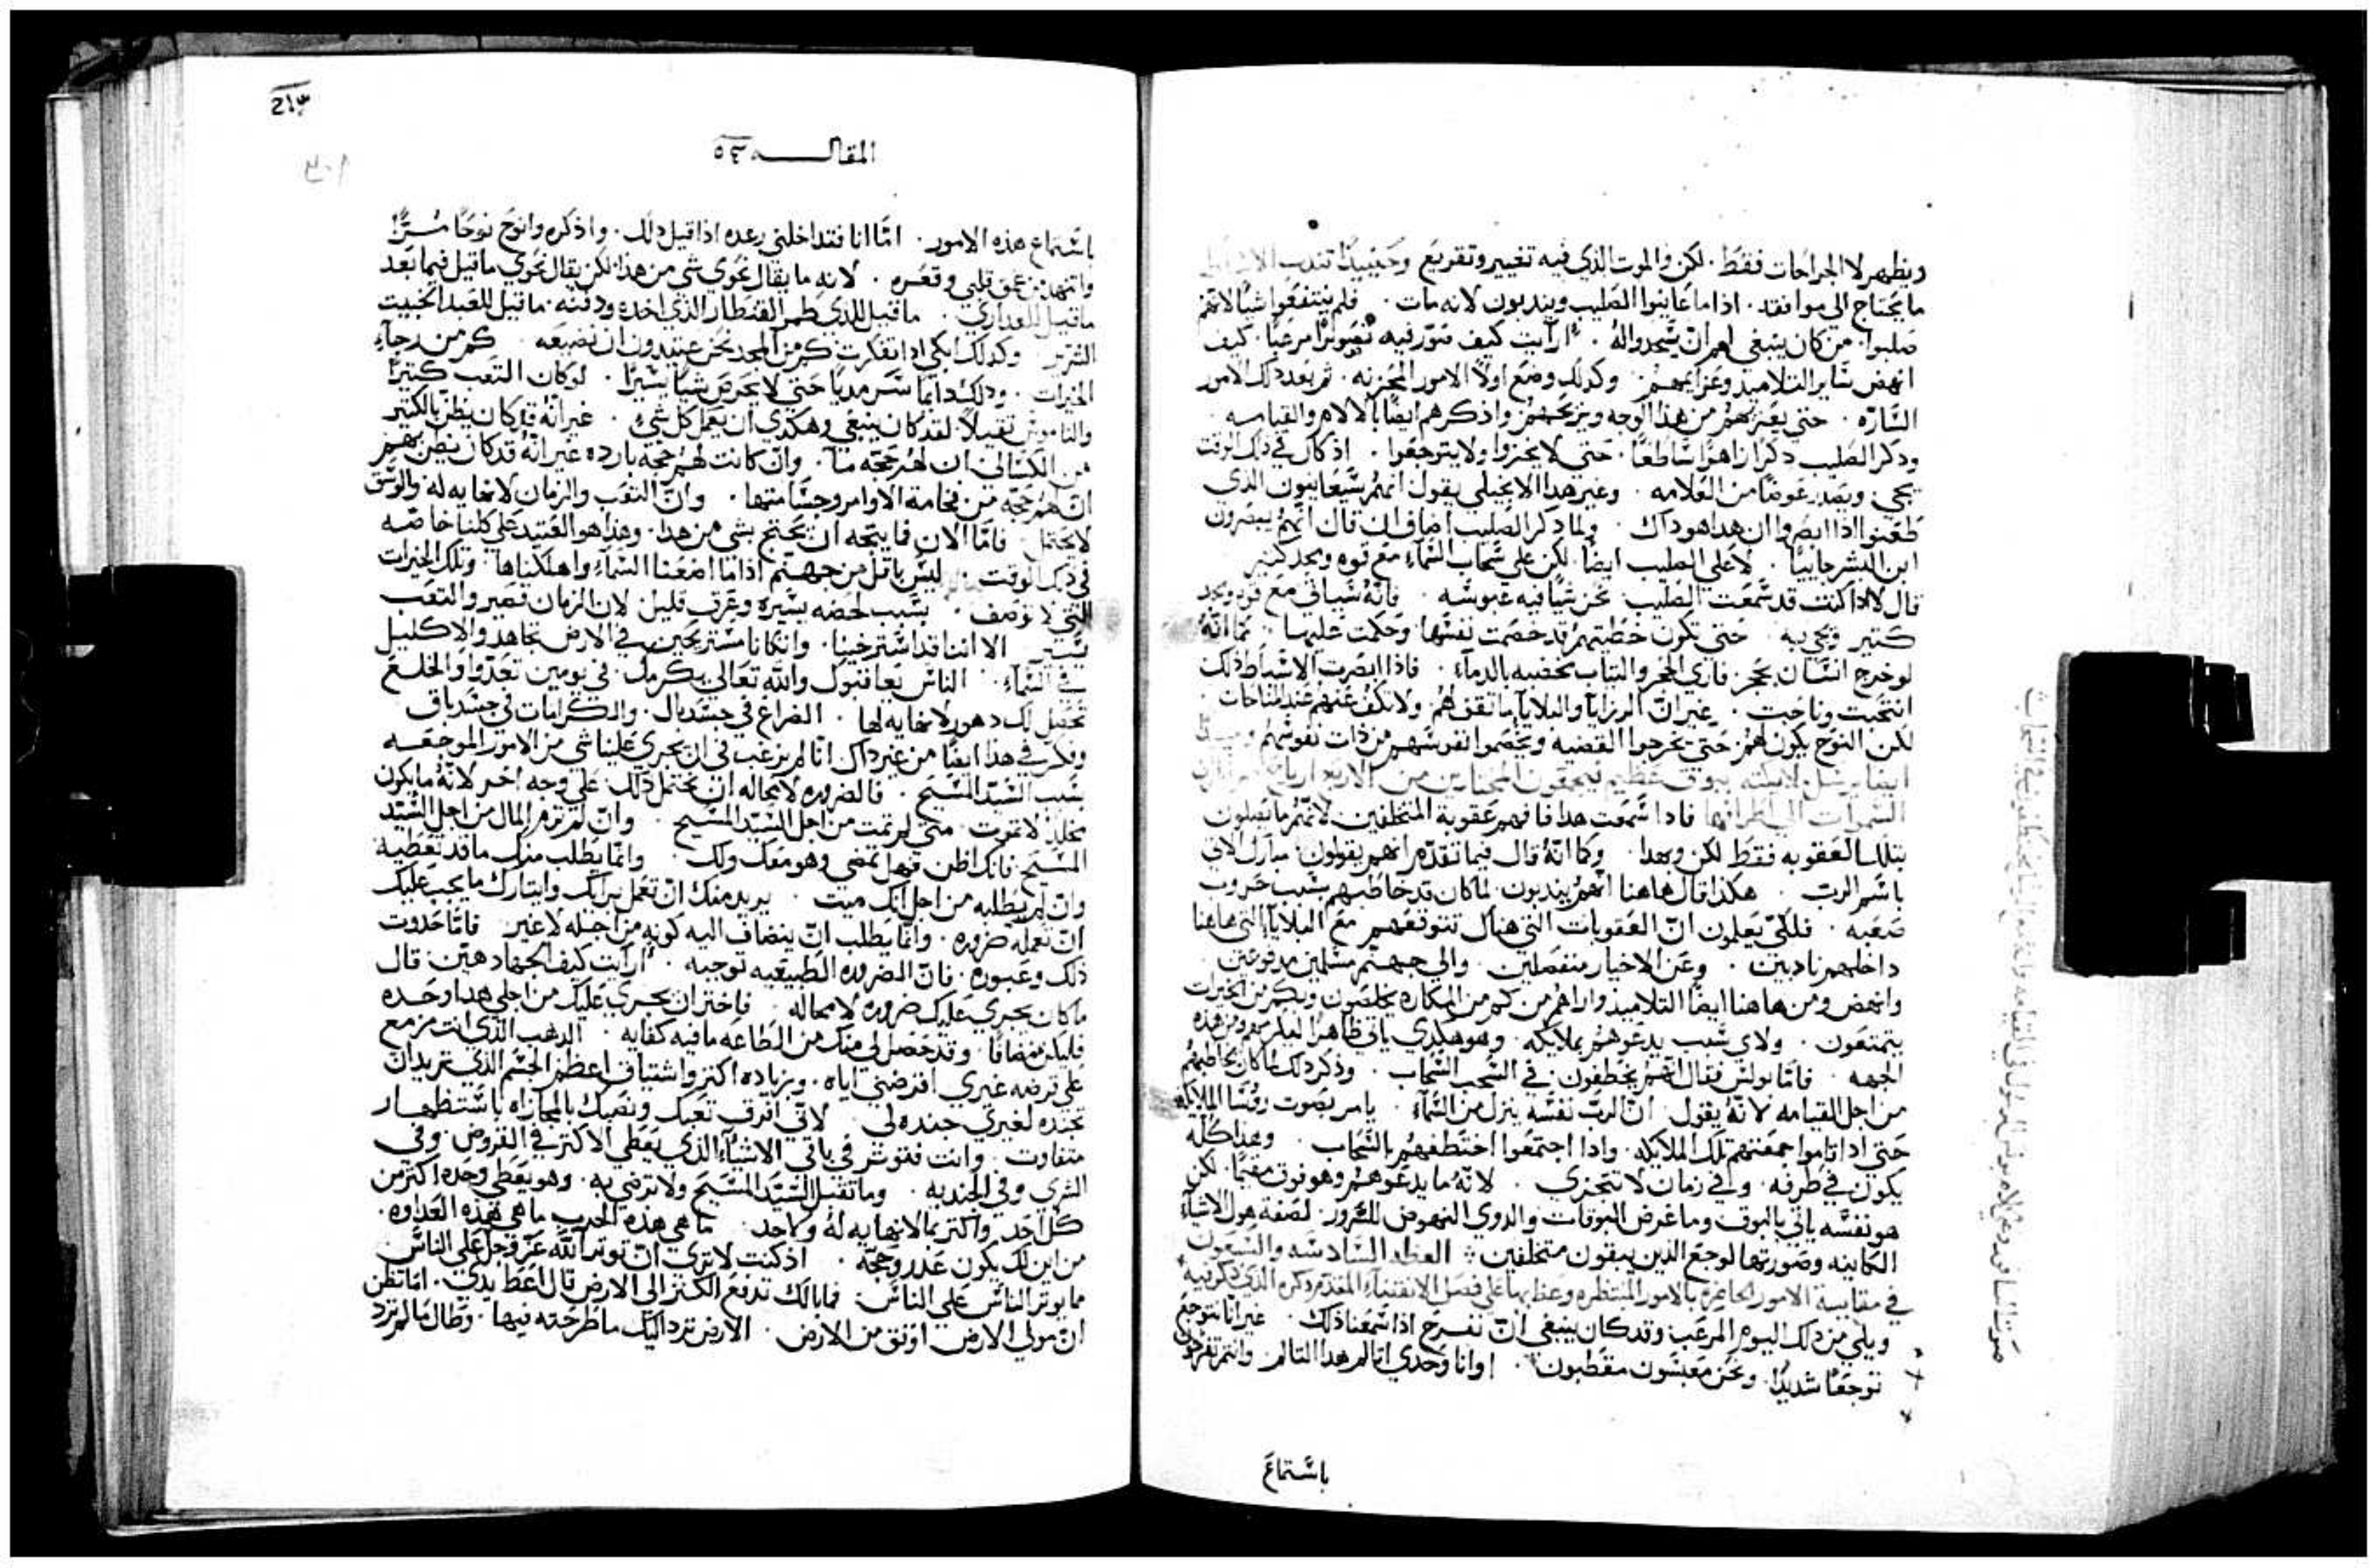 ويظهر لا الجراحات فقط. لكن والموت الذي فيه تعيير وتقريع وحينيذٍ تندب
ما يحتاج الى موافقد. اذا ما عاينوا الصليب ويندبون لانه مات. فلم ينتفعوا شيًا لانهم
صلبوا. من كان ينبغي لهم ان يسجدوا له. ارأيت كيف صور فيه تصويرًا مرعبًا. كيف
انهض ساير التلاميد وعزايمهم. وكدلك وضع اولًا الامور المحزنه. ثم بعد دلك الامور
السّارّه. حتى يعزيهم من هذا الوجه ويريحهم واذكرهم ايضًا بالالام والقيامه.
ودكر الصليب دكرًا زاهرًا ساطعًا. حتى لا يخزوا ولا يتوجعوا. اذ كان في دلك الوقت
يجي ويصدر عوضًا من العلامه. وغير هدا الانجيلي يقول انهم سيعاينون الدي
طعنوا اذا ابصروا ان هدا هو داك. ولما دكر الصليب اضاف ان قال انهم يبصرون
ابن البشر جاييًا. لا على الصليب ايضًا لكن على سحاب السماء مع قوه ومجد كتير
قال لا اذا كنت قد سمعت الصليب تحزن شيًا فيه عبوسه. فانه سياتي مع قوه ومجد
كتير ويجي به. حتى تكون خطيتهم قد خصمت نفسها وحكمت عليها. كما انّه
لو خرج انسان بحجر فاري الحجر والتياب مخضبه بالدماء. فاذا ابصرت الاسباط ذلك
انتحبت وناحت. غير انّ الرزايا والبلايا ما تقف لهم ولا تكف عنهم عند المناحات
لكن النوح يكون لهم حتى يخرجوا القضيه ويخصموا نفوسهم من ذات نفوسهم
ايضًا يرسل ملايكته ببوق عظيم فيجمعون المختارين من الاربع ارياح من اطراف
السموات الى اطرافها فادا سمعت هدا فافهم عقوبة المتخلفين لانهم ما يصلون
بتلك العقوبه فقط لكن وبهدا. وكما انّه قال فيما تقدّم انهم يقولون مبارك الاتي
باسم الرب. هكدا قال هاهنا انهم يندبون. لما كان قد خاطبهم بسبب حروب
صعبه. فلكي يعلمون انّ العقوبات التي هناك تتوقعهم مع البلايا التي هاهنا
داخلهم نادبين. وعن الاخيار منفصلين. والى جهنم مسلمين مدفوعين.
وانهض ومن هاهنا ايضًا التلاميد واراهم من كم من المكاره يخلصون وبكم من الخيرات
يتمتعون. ولاي سبب يدعوهم بملايكه. وهو هكدي ياتي ظاهرًا ليكرمهم ومن هده
الجهه. فامّا بولس فقال انهم يخطفون في السحب السحاب. وذكر دلك لما كان يخاطبهم
من اجل القيامه لانه يقول. انّ الرب نفسه ينزل من السماء. بامر بصوت روسا الملايكه
حتى ادا قاموا جمعتهم تلك الملايكه. وادا اجتمعوا اختطفهم بالسحاب. وهدا كله
يكون في طرفه. وفي زمان لا تتجزى. لانه ما يدعوهم وهو فوق مقيمًا. لكن
هو نفسه ياتي بالبوق وما غرض البوقات والدوي النهوض للسرور. لصفة هول الاشياء
الكاينه وصورتها لوجع الذين يبقون متخلفين. العظه السادسه والسبعون
في مقايسة الامور الحاضره بالامور المنتظره وعظ بها على فصل الاقتناء المقدم دكره الذي دكر فيه
ويلي من دلك اليوم المرعب وقد كان ينبغي انّ نفرح اذا سمعنا ذلك. غير انّا نتوجع
توجعًا شديدًا. ونحن معبسون مقطبون. اوانا وحدي اتالم هدا التالم وانتم تفرحون
باستماع
المقاله ٥٣
باستماع هذه الامور. امّا انا فتداخلني رعده اذا قيل دلك. واذكره وانوح نوحًا مُرًّا
واتنهد من عمق قلبي وقعره. لانه ما يقال نحوي شي من هدا لكن يقال نحوي ما قيل فيما بعد
ما قيل للعداري. ما قيل للدي طمر القنطار الذي اخده ودفنه. ما قيل للعبد الخبيت
الشرير. وكدلك ابكي ادا تفكرت كم من المجد نحن عتيدون ان نضيعه. كم من رجاء
الخيرات. ودلك دايمًا سرمديًا حتى لا نحرص شيًا يسيرًا. لو كان التعب كتيرًا
والناموس تقيلًا لقد كان ينبغي وهكدي ان نعمل كل شي. غير انّه قد كان يظن بالكتير
من الكسالى ان لهم حجّه ما. وان كانت لهم حجه بارده غير انّه قد كان يظن بهم
انّ لهم حجّه من فخامة الاوامر وجسامتها. وانّ التعب والزمان لا نهايه له والوسق
لا يحتمل. فامّا الان فما يتجه ان يحتج بشي من هدا. وهدا هو العتيد على كلنا خاصه
في دلك الوقت. ليس باقل من جهنم اذا ما اضعنا السماء واهلكناها. وتلك الخيرات
التي لا توصف. بسبب لحضه يسيره وعرق قليل. لان الزمان قصير والتعب
يسير. الا اننا قد استرخينا. وان كنا مستريحين. في الارض تجاهد والاكليل
في السماء. الناس يعاقبوك والله تعالى يكرمك. في يومين تعدّوا والخلع
تحصل لك دهور لا نهايه لها. الفراغ في جسد بال. والكرامات في جسد باق
وفكّر في هذا ايضًا من غير داك انّا لم نرغب في ان يجري علينا شي من الامور الموجعه
بسبب السيّد المسيح. فالضروره لا محاله ان نحتمل دلك على وجه اخر لانّه ما يكون
مخلد لا تموت. متى لم تمت من اجل السيّد المسيح. وان لم ترم المال من اجل السيّد
المسيح. فانك اظن فيهل تمضي وهو معك ولك. وانما يطلب منك ما قد تعطيه
وان لم يطلبه من اجل انك ميت. يريد منك ان تعمل برايك وايتارك ما يجب عليك
ان تعمله ضروره. وانّما يطلب انّ ينضاف اليه كونه من اجله لا غير. فامّا حدوت
ذلك وعبوره. فان الضروره الطبيعيه توجبه. ارايت كيف الجهاد هيّن. قال
ما كان يجري عليك ضروره لا محاله. فاختر ان يجري عليك من اجلي هدا وحده
فليكن مضافًا. وقد حصل لي منك من الطاعه ما فيه كفايه. الدهب الذي انت مزمع
على ترضه غيري اقرضني اياه. وبزياده اكتر واشتياق اعظم. الجسم الذي تريد ان
تجنده لغيري جنده لي. لانّي افرق تعبك ونصبك بالمجازاه باستظهار
متفاوت. وانت فتوتر في باقي الاشياء الذي يعطي الاكتر في القروض. وفي
الشري وفي الجنديه. وما تقبل السيّد المسيح ولا ترضي به. وهو يعطي وحده اكتر من
كل احد. واكتر بما لا نهايه له ولا حد. ما هي هذه الحرب ما هي هذه العداوه.
من اين لك يكون عدر وحجّه. اذ كنت لا ترى انّ توتر الله عزّ وجل على الناس.
ما يوتر الناس على الناس. فما بالك تدفع الكنز الى الارض قال اعط يدي. اما تظن
ان مولى الارض اوتق من الارض. الارض ترد اليك ما طرحته فيها. وطال ما لم ترد